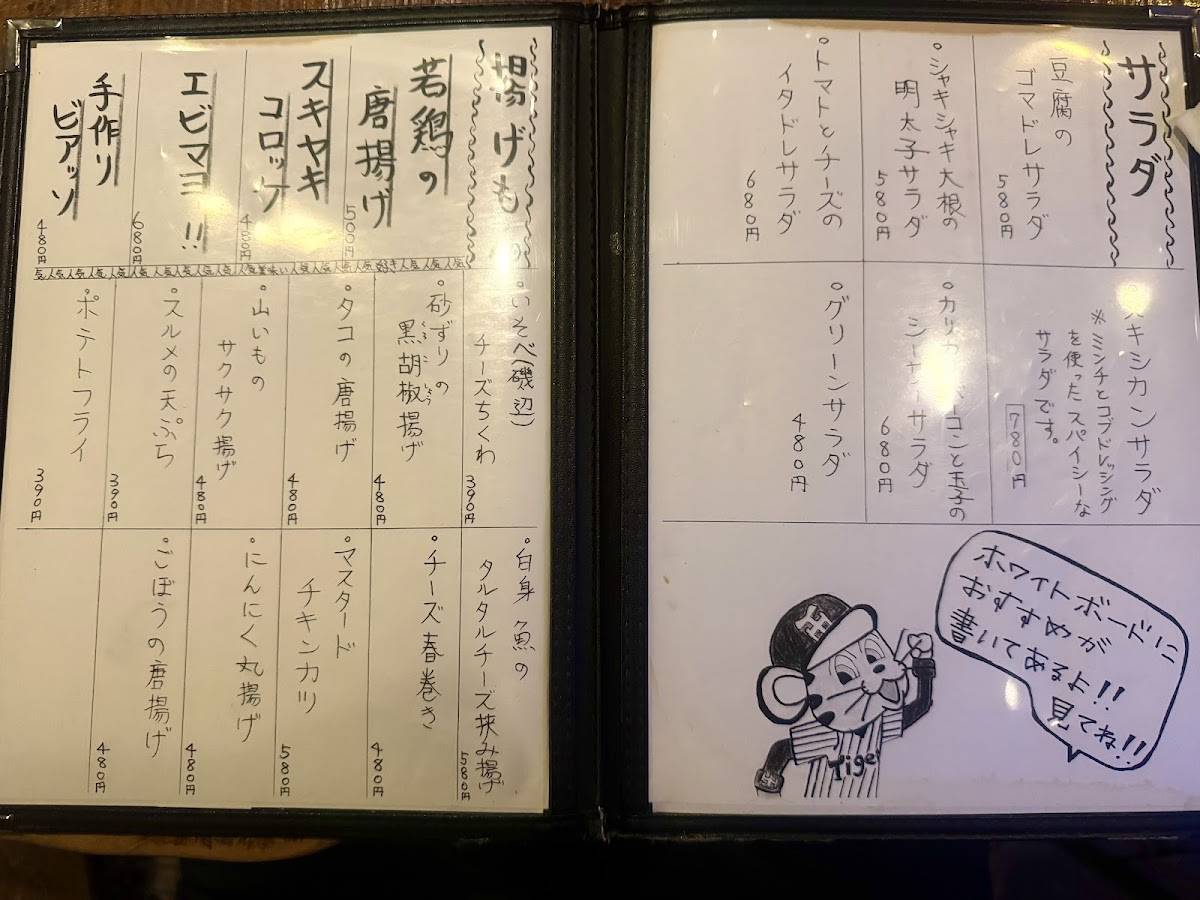 サラダ
豆腐の
ゴマドレサラダ
580円
シャキシャキ大根の
明太子サラダ
580円
トマトとチーズの
イタドレサラダ
680円
キシカンサラダ
※ミンチとコブドレッシング
を使ったスパイシーな
サラダです。
780円
カリカ ベーコンと玉子の
シーザーサラダ
680円
グリーンサラダ
480円
ホワイトボードに
おすすめが
書いてあるよ!!
見てね!!
Tiger
揚げもの
若鶏の
唐揚げ
500円
スキヤキ
コロッケ
480円
エビマヨ!!
680円
手作り
ピアッソ
480円
人気人気人気人気人気人気人気人気美味い人気人気人気好き人気人気人気
いそべ(磯辺)
チーズちくわ
390円
砂ずりの
黒胡椒揚げ
くろこしょう
480円
タコの唐揚げ
480円
山いもの
サクサク揚げ
480円
スルメの天ぷら
390円
ポテトフライ
390円
白身魚の
タルタルチーズ挟み揚げ
580円
チーズ春巻き
480円
マスタード
チキンカツ
580円
にんにく丸揚げ
480円
ごぼうの唐揚げ
480円